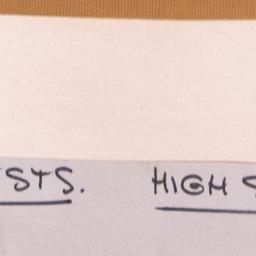 STS. HIGH